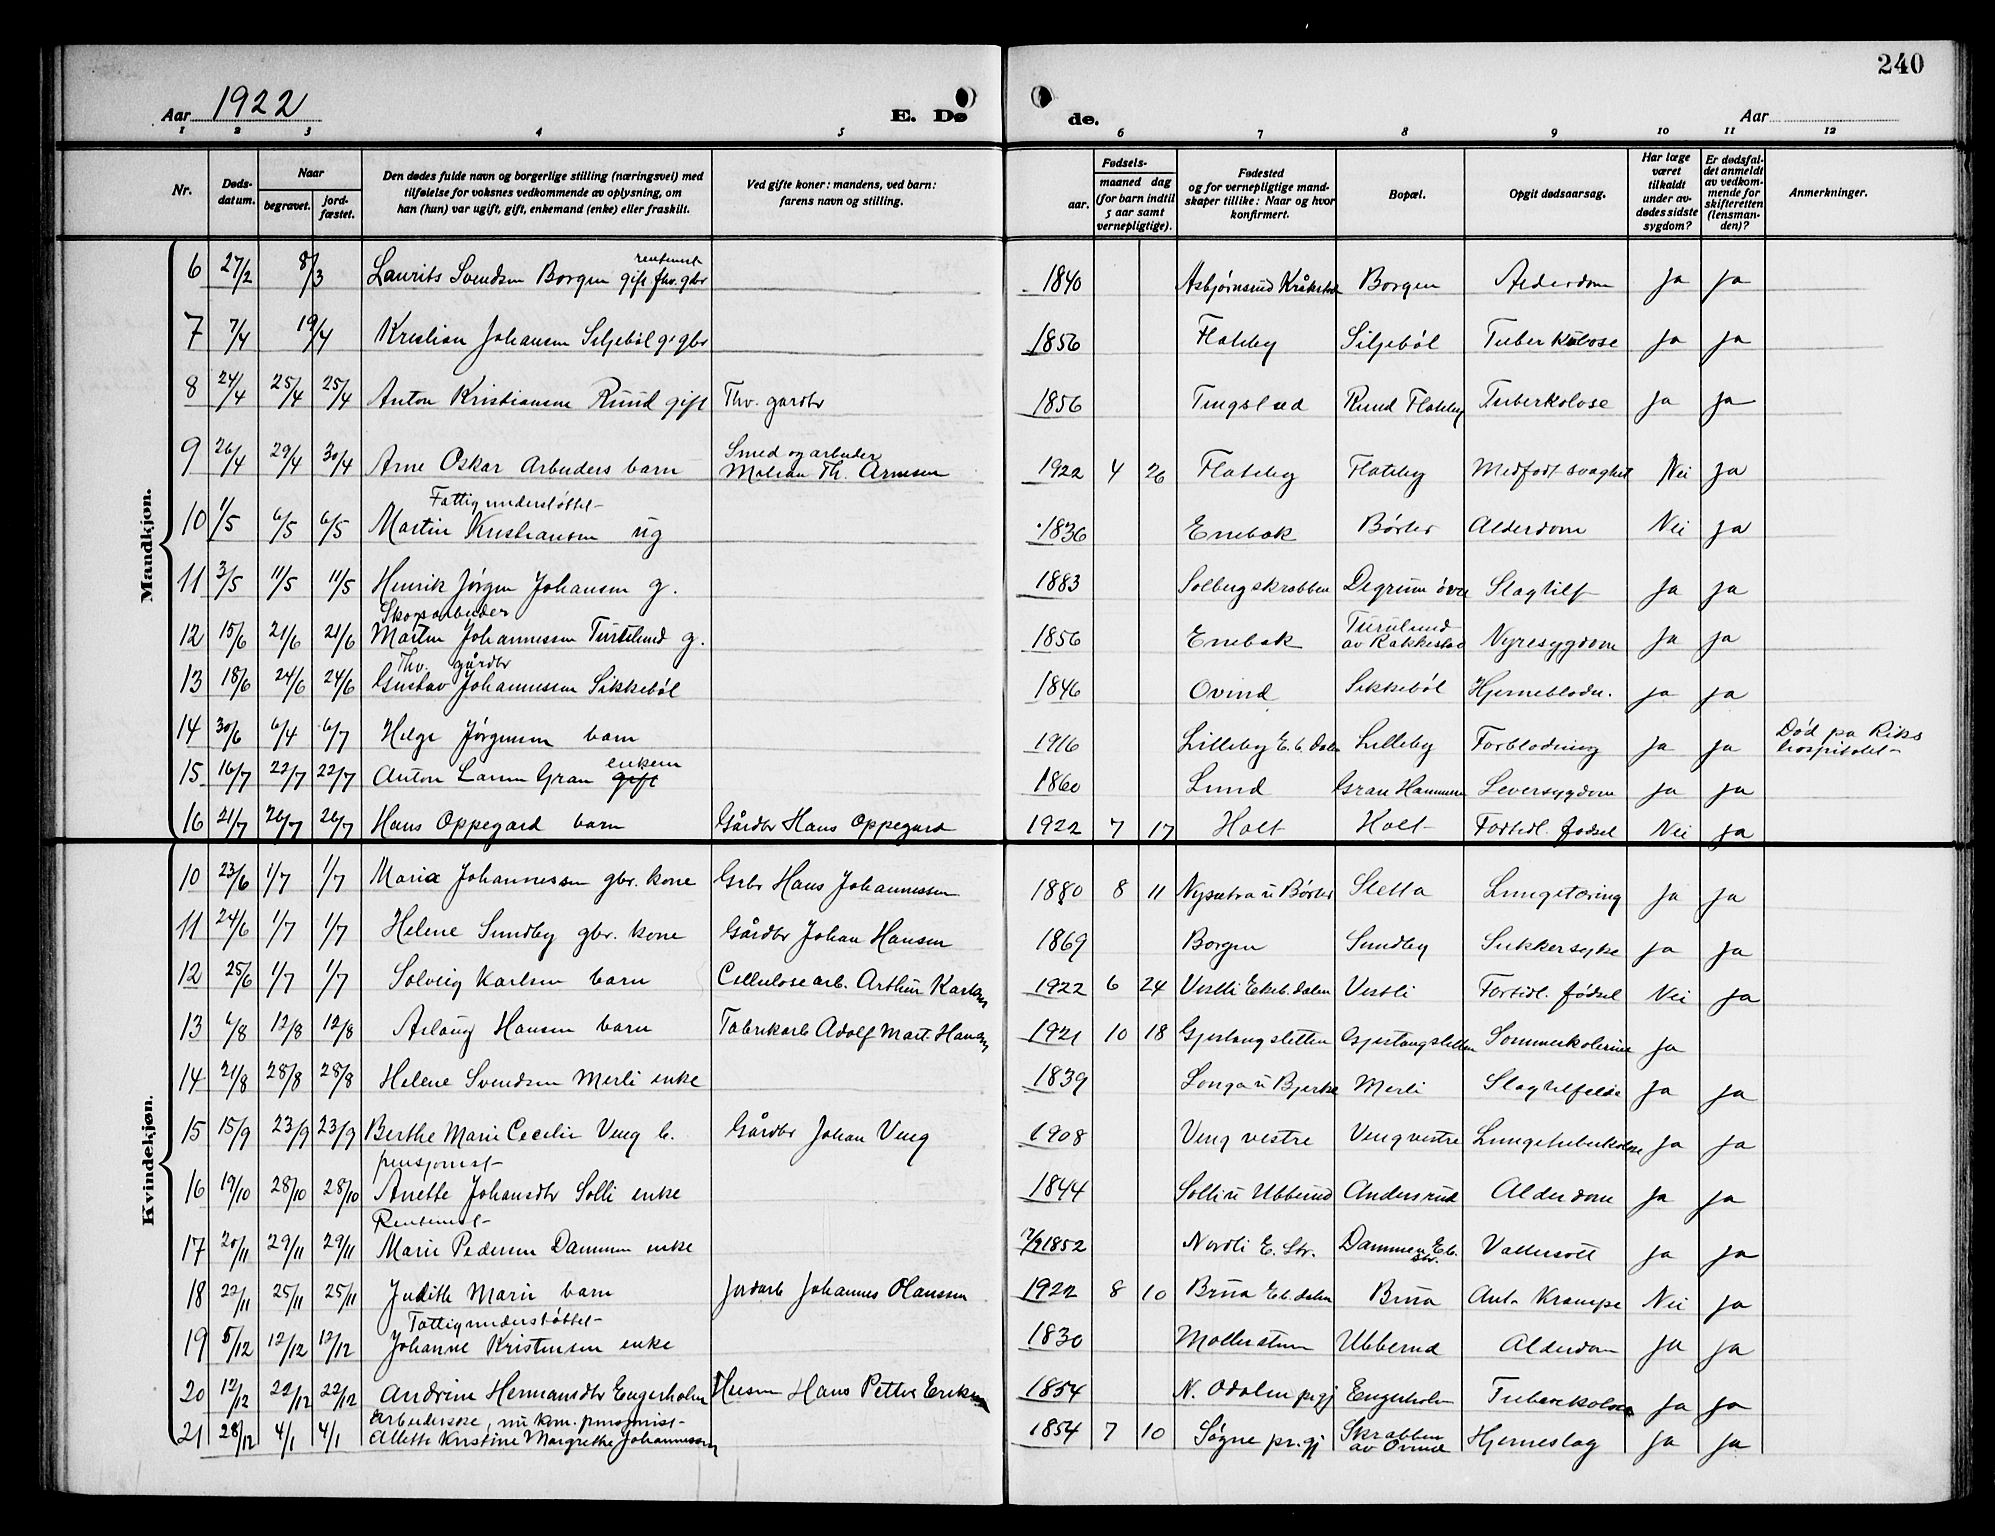 240
Aar 1922 E. Dø de. Aar
1 2 3 4 5 6 7 8 9 10 11 12
Nr. Døds-datum. Naar begravet. jord-fæstet. Den dødes fulde navn og borgerlige stilling (næringsvei) med tilføielse for voksnes vedkommende av oplysning, om han (hun) var ugift, gift, enkemand (enke) eller fraskilt. Ved gifte koner: mandens, ved barn: farens navn og stilling. Fødsels- aar. maaned dag (for barn indtil 5 aar samt vernepligtige). Fødested og for vernepligtige mandskaper tillike: Naar og hvor konfirmert. Bopæl. Opgit dødsaarsag. Har læge været tilkaldt under avdødes sidste sygdom? Er dødsfaldet anmeldt av vedkommende for skifteretten (lensmanden)? Anmerkninger.
Mandkjøn.
6 27/2 8/3 Laurits Svendsen Borgen gift fhv. gbr rentenist 1840 Asbjørnsrud Kråkstad Borgen Alderdom Ja Ja
7 7/4 19/4 Kristian Johansen Siljebøl g. gbr 1856 Flateby Siljebøl Tuberkulose Ja Ja
8 24/4 25/4 25/4 Anton Kristiansen Ruud gift Fhv. gardbr 1856 Tingstad Ruud Flateby Tuberkolose Ja Ja
9 26/4 29/4 30/4 Arne Oskar Arbeiders barn Smed og arbeider Th. Arnesen 1922 4 26 Flateby Flateby Medfødt svaghet Nei Ja
Fattigunderstøttet
10 1/5 6/5 6/5 Martin Kristiansen ug 1836 Enebak Børter Alderdom Nei Ja
11 3/5 11/5 11/5 Henrik Jørgen Johansen g. 1883 Solbergskrabben Degrum øvre Slagtilf Ja Ja
Skogsarbeider
12 15/6 21/6 21/6 Martin Johannessen g. 1856 Enebak av Rakkestad Nyresygdom Ja Ja
Fhv. gårdbr
13 18/6 24/6 24/6 Gustav Johannessen Sikkebøl 1846 Ovind Sikkebøl Hjerneblødn. Ja Ja
14 30/6 6/4 6/7 Helge Jørgensen barn 1916 Lilleby E.b.dalen Lilleby Forblødning Ja Ja Død på Rikshospitalet
15 16/7 22/7 22/7 Anton Larsen Gran gift enkem 1860 Lund Gran Hammeren Leversygdom Ja Ja
16 21/7 26/7 26/7 Hans Oppegard barn Gårdbr Hans Oppegard 1922 7 17 Holt Holt Fortidl. fødsel Nei Ja
Kvindekjøn.
10 23/6 1/7 1/7 Maria Johannessen gbr. kone Grbr Hans Johannessen 1880 8 11 Nysetra u Børter Sletta Lungetæring Ja Ja
11 24/6 1/7 1/7 Helene Sundby gbr. kone Gårdbr Johan Hansen 1869 Borgen Sundby Sukkersyke Ja Ja
12 25/6 1/7 1/7 Solveig Karlsen barn Cellulosearb. Arthur Karlsen 1922 6 24 Vestli Ekeb.dalen Vestli Fortidl. fødsel Nei Ja
13 6/8 12/8 12/8 Aslaug Hansen barn Fabrikarb Adolf Mart. Hansen 1921 10 18 Gjestangsletten Gjestangsletten Sommerkolerine Ja
14 21/8 28/8 28/8 Helene Svendsen Merli enke 1839 Longa u Bjerke Merli Slagtilfelde Ja Ja
15 15/9 23/9 23/9 Berthe Marie Cecilie Veng b. Gårdbr Johan Veng 1908 Veng vestre Veng vestre Lungetuberkolose Ja Ja
pensjonist
16 19/10 28/10 28/10 Anette Johansdtr Solli enke 1844 Solli u Ubberud Andersrud Alderdom Ja Ja
Rentenist
17 20/11 29/11 29/11 Marie Pedersen Dammen enke 7/9 1852 Nordli E. Str. Dammen Eb. Str. Vattersott Ja Ja
18 22/11 25/11 25/11 Judith Marie barn Jordarb Johannes Olaussen 1922 8 10 Brua Eb.dalen Brua Krampe Nei Ja
Fattigunderstøttet
19 5/12 12/12 12/12 Johanne Kristensen enke 1830 Møllerstuen Ubberud Alderdom Ja Ja
20 12/12 22/12 22/12 Andrine Hermansdtr Engerholm Husm Hans Petter Eriksen 1854 N. Odalen prgj Engerholm Tuberkolose Ja Ja
Arbeiderske, nu kom. pensjonist
21 28/12 4/1 4/1 Alette Kristine Margrethe Johannessen 1854 7 10 Søgne pr.gj Skrabben av Ovind Hjerneslag Ja Ja